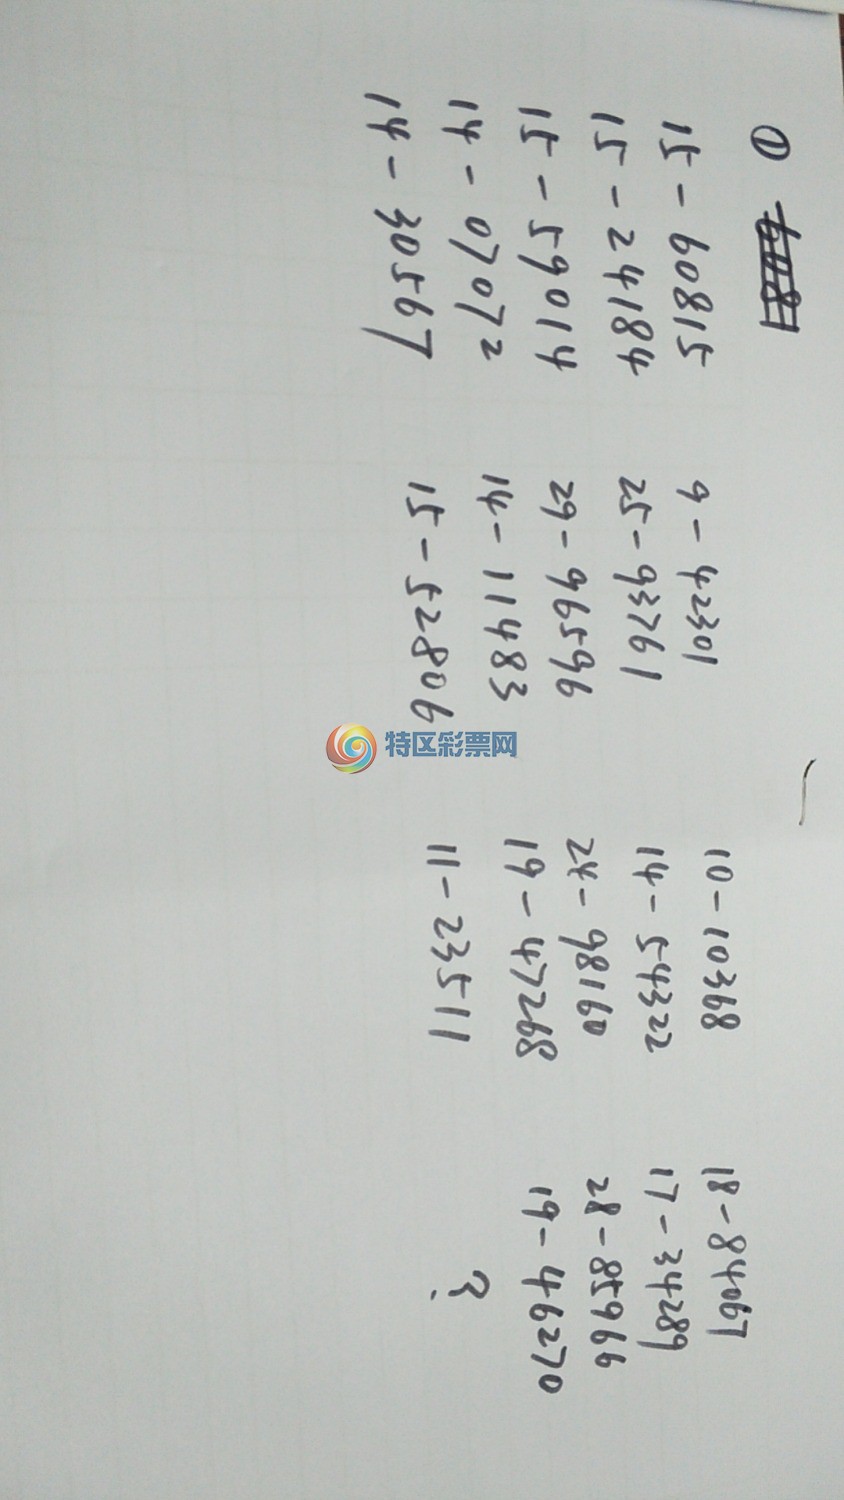 ①
15-60815 9-42301 10-10368 18-84067
15-24184 25-93761 14-54322 17-34289
15-59014 29-96596 24-98160 28-85966
14-07072 14-11483 19-47268 19-46270
14-30567 15-52806 11-23511 ?
特区彩票网